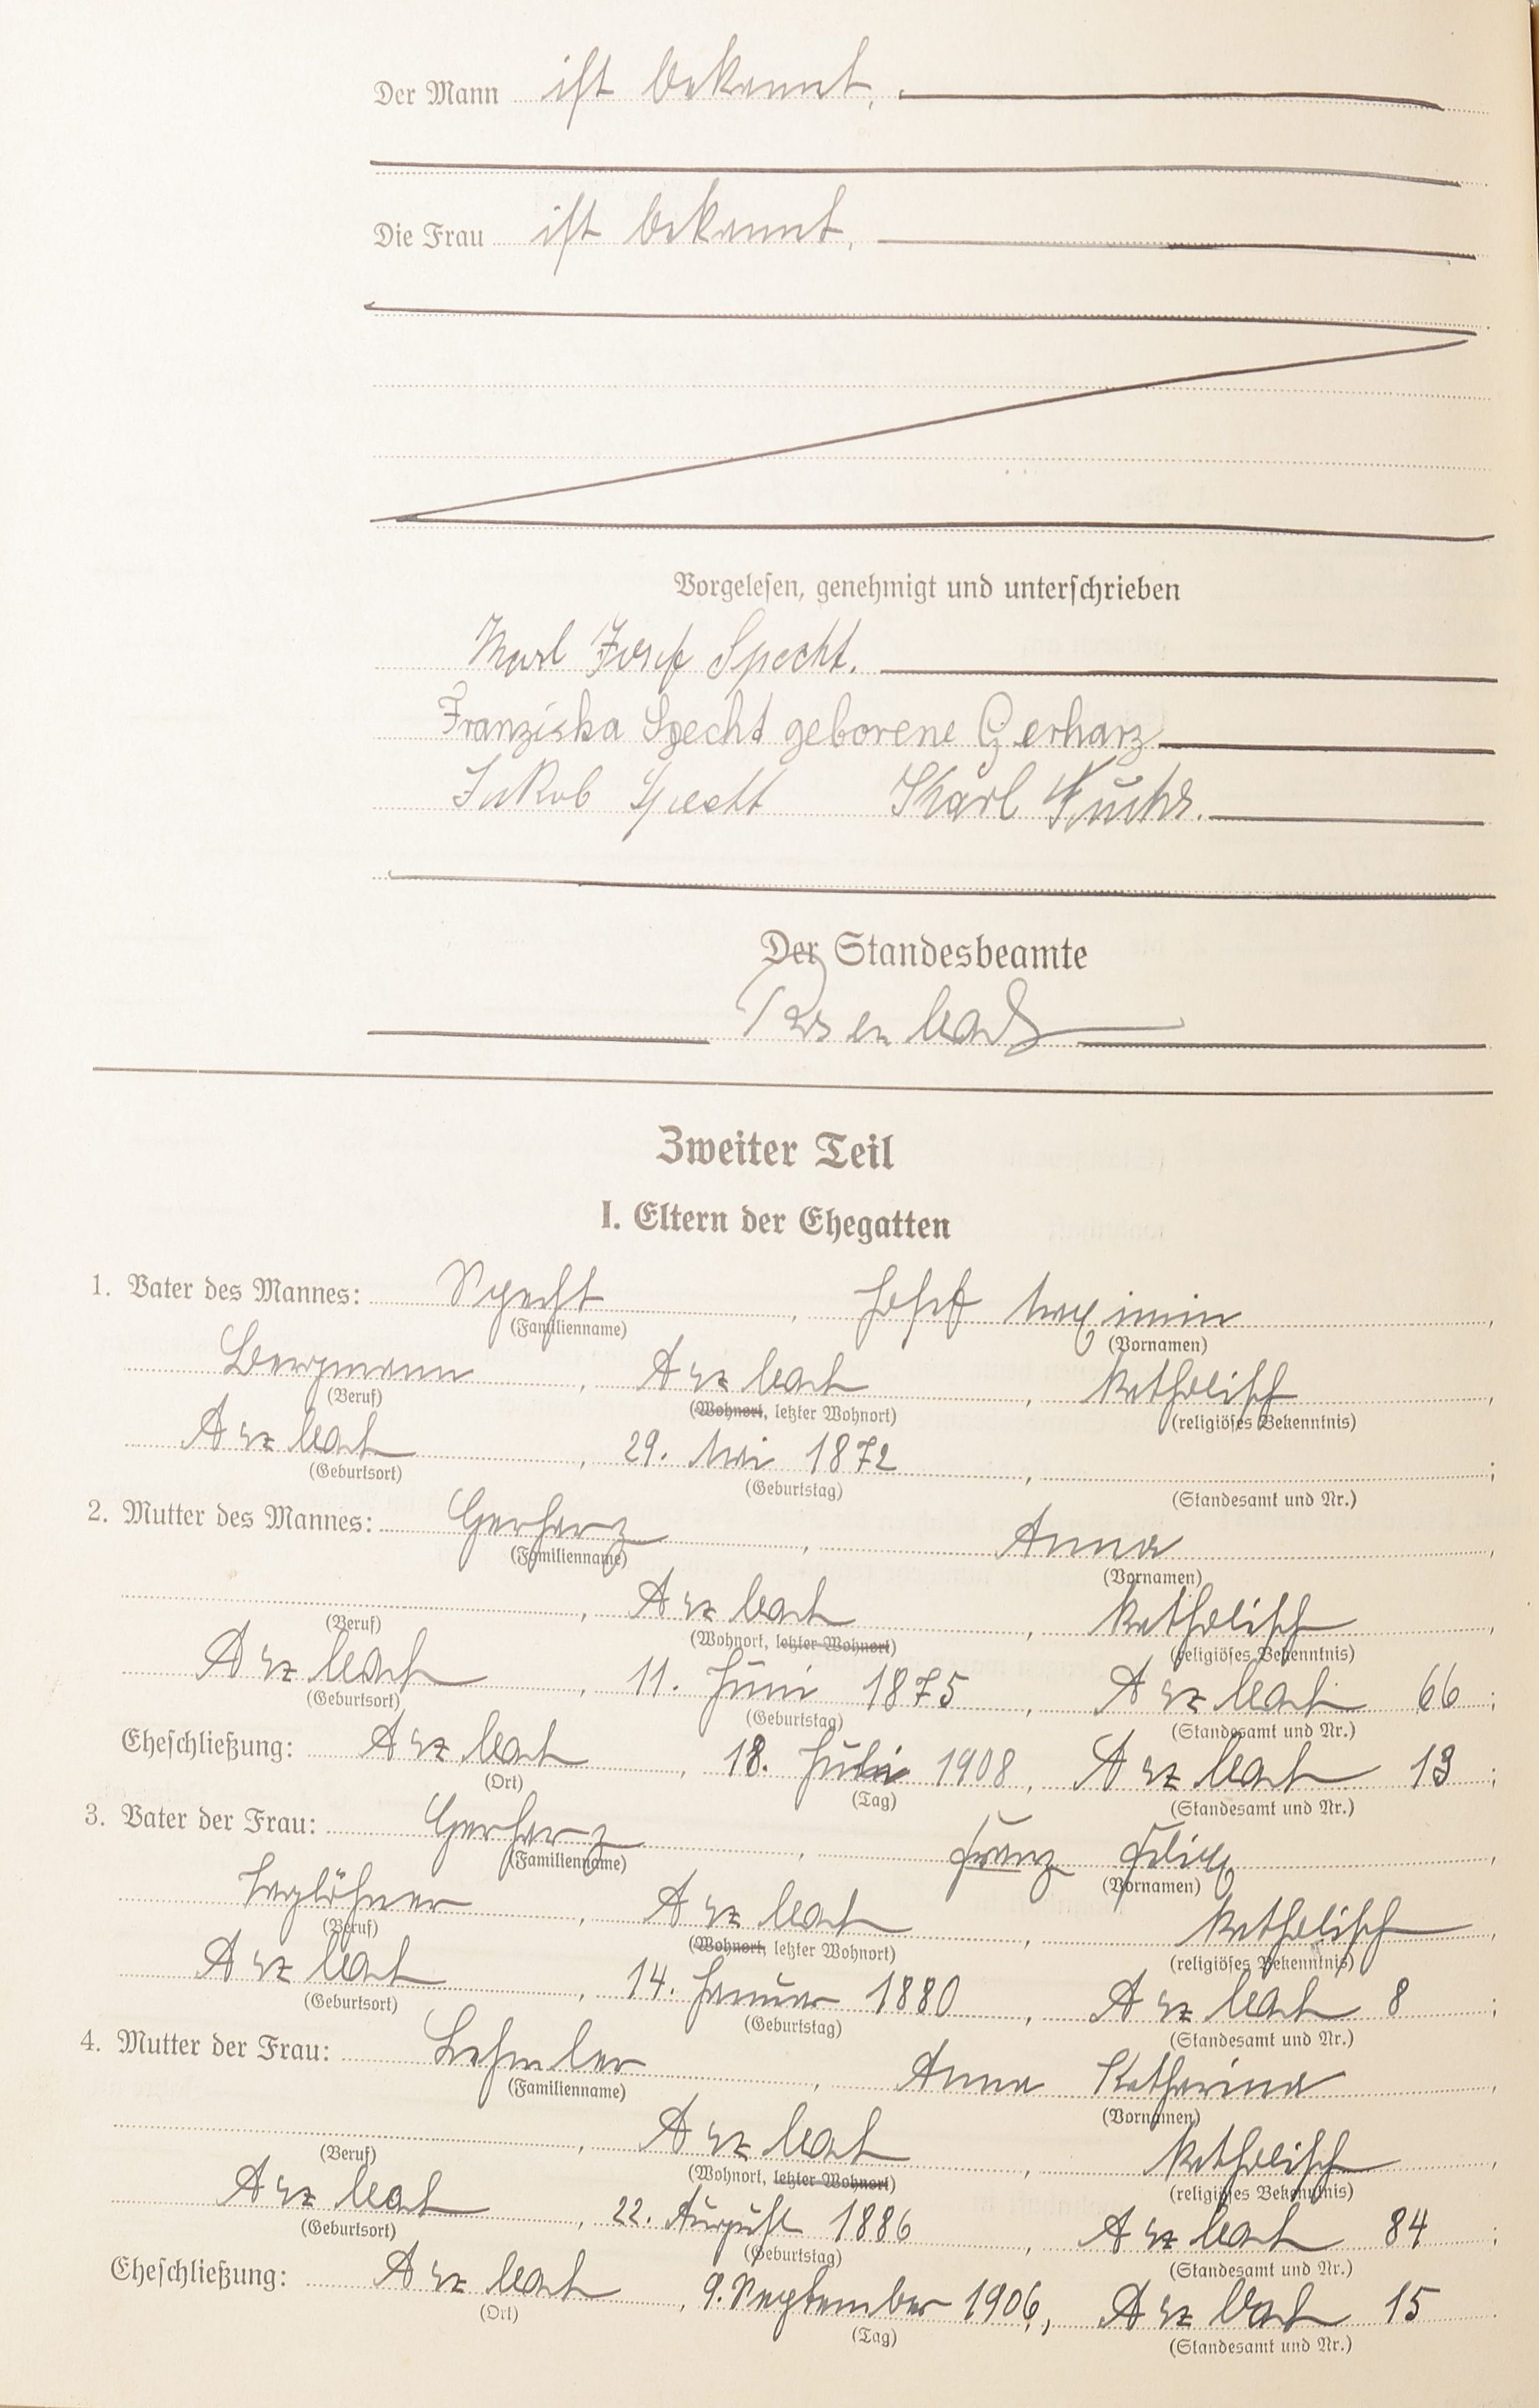 Der Mann ist bekannt,
Die Frau ist bekannt,
Vorgelesen, genehmigt und unterschrieben
Karl Josef Specht.
Franziska Specht geborene Gerharz
Jakob Specht Karl Fuchs.
Der Standesbeamte
Zweiter Teil
I. Eltern der Ehegatten
1. Vater des Mannes: Specht, Josef Maximin,
(Familienname) (Vornamen)
Bergmann, Arzbach, katholisch,
(Beruf) (Wohnort, letzter Wohnort) (religiöses Bekenntnis)
Arzbach, 29. Mai 1872,
(Geburtsort) (Geburtstag) (Standesamt und Nr.)
2. Mutter des Mannes: Gerharz, Anna,
(Familienname) (Vornamen)
, Arzbach, katholisch,
(Beruf) (Wohnort, letzter Wohnort) (religiöses Bekenntnis)
Arzbach, 11. Juni 1875, Arzbach 66;
(Geburtsort) (Geburtstag) (Standesamt und Nr.)
Eheschließung: Arzbach, 18. Juli 1908, Arzbach 13;
(Ort) (Tag) (Standesamt und Nr.)
3. Vater der Frau: Gerharz, Franz Felix,
(Familienname) (Vornamen)
Taglöhner, Arzbach, katholisch,
(Beruf) (Wohnort, letzter Wohnort) (religiöses Bekenntnis)
Arzbach, 14. Januar 1880, Arzbach 8;
(Geburtsort) (Geburtstag) (Standesamt und Nr.)
4. Mutter der Frau: Lehmler, Anna Katharina,
(Familienname) (Vornamen)
, Arzbach, katholisch,
(Beruf) (Wohnort, letzter Wohnort) (religiöses Bekenntnis)
Arzbach, 22. August 1886, Arzbach 84;
(Geburtsort) (Geburtstag) (Standesamt und Nr.)
Eheschließung: Arzbach, 9. September 1906, Arzbach 15
(Ort) (Tag) (Standesamt und Nr.)